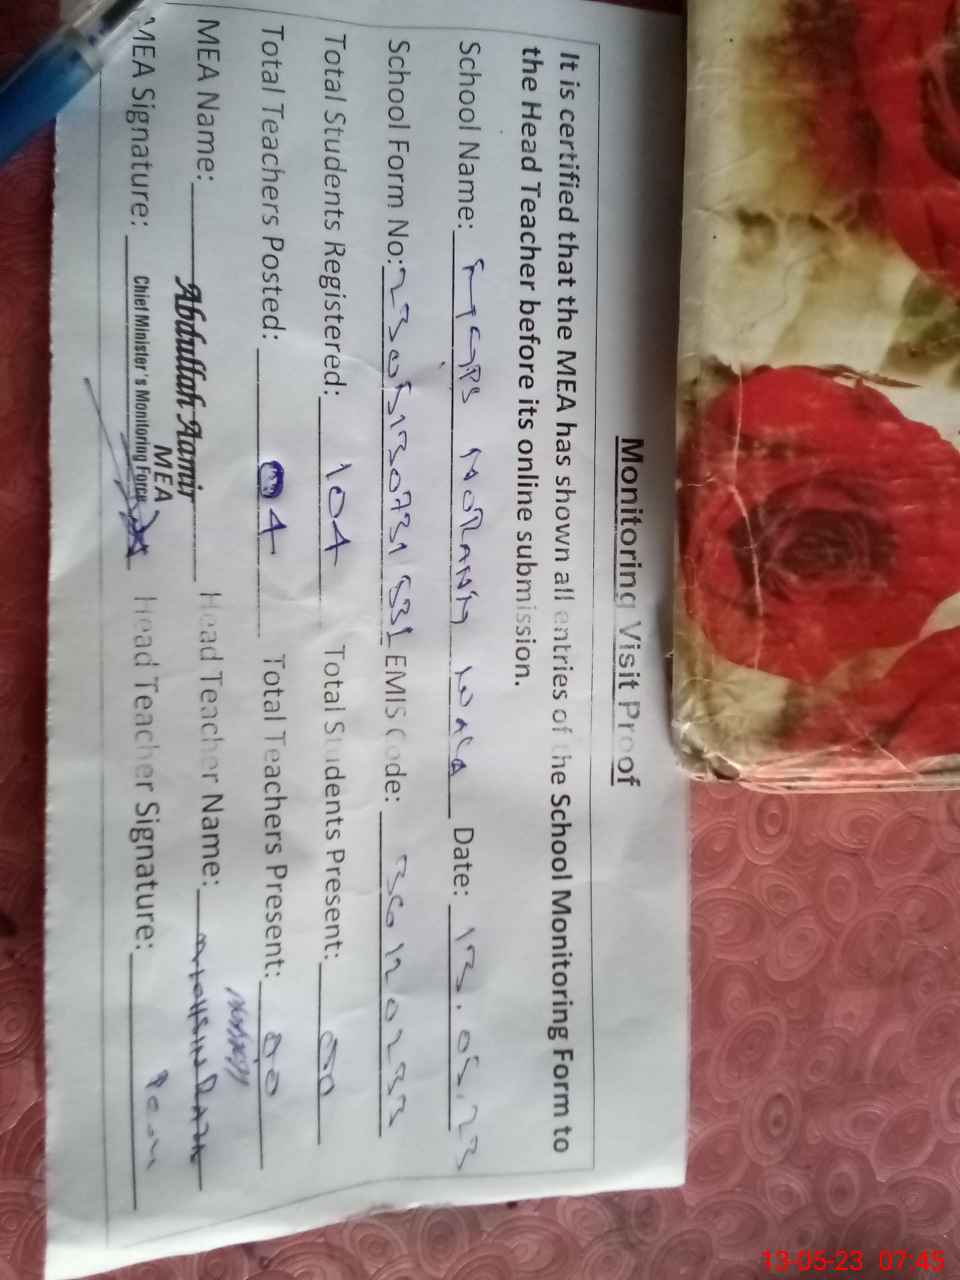 Monitoring Visit Proof
It is certified that the MEA has shown all entries of the School Monitoring Form to
the Head Teacher before its online submission.
School Name: Date: 13.05.23
School Form No: EMIS Code:
Total Students Registered: 104 Total Students Present: 00
Total Teachers Posted: 04 Total Teachers Present: 00
MEA Name: Abdullah Aamir Head Teacher Name:
MEA
Chief Minister's Monitoring Force
MEA Signature: Head Teacher Signature:
13-05-23 07:45